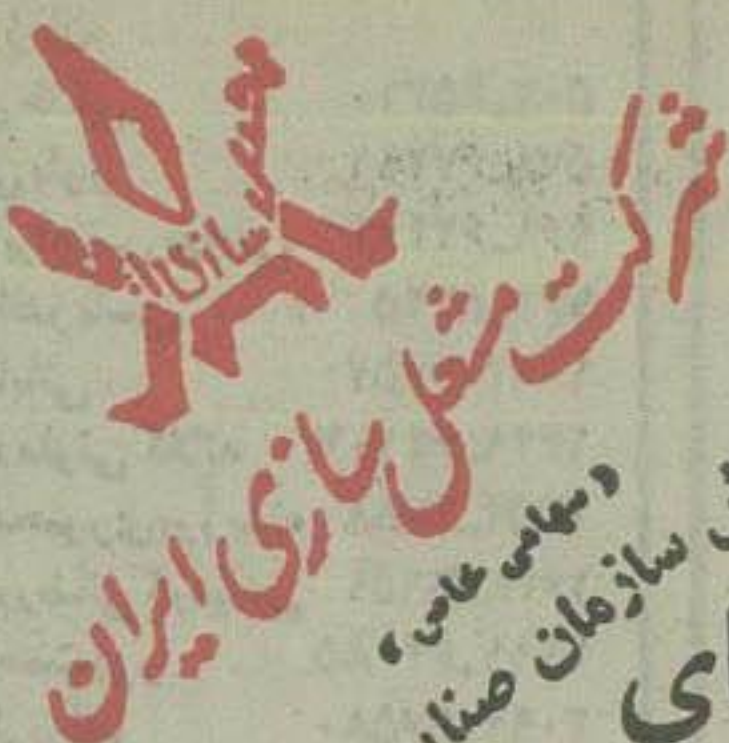 سازی
شرکت مشعل سازی ایران
«سهامی عام»
سازمان صنایع